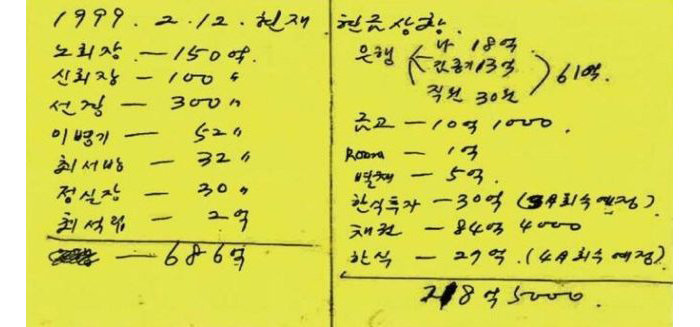 1999. 2. 12. 현재
노회장 — 150억.
신회장 — 100 〃
선장 — 300 〃
이병기 — 52 〃
최서방 — 32 〃
정실장 — 30 〃
최석림 — 2억
— 686억
현금상황.
은행 나 18억
13억
직원 30억
61억.
금고 — 10억 1000.
Room — 1억
별채 — 5억.
한식투자 — 30억 (3A회수예정)
채권 — 84억 4000
한식 — 27억. (4A회수예정)
218억 5000.